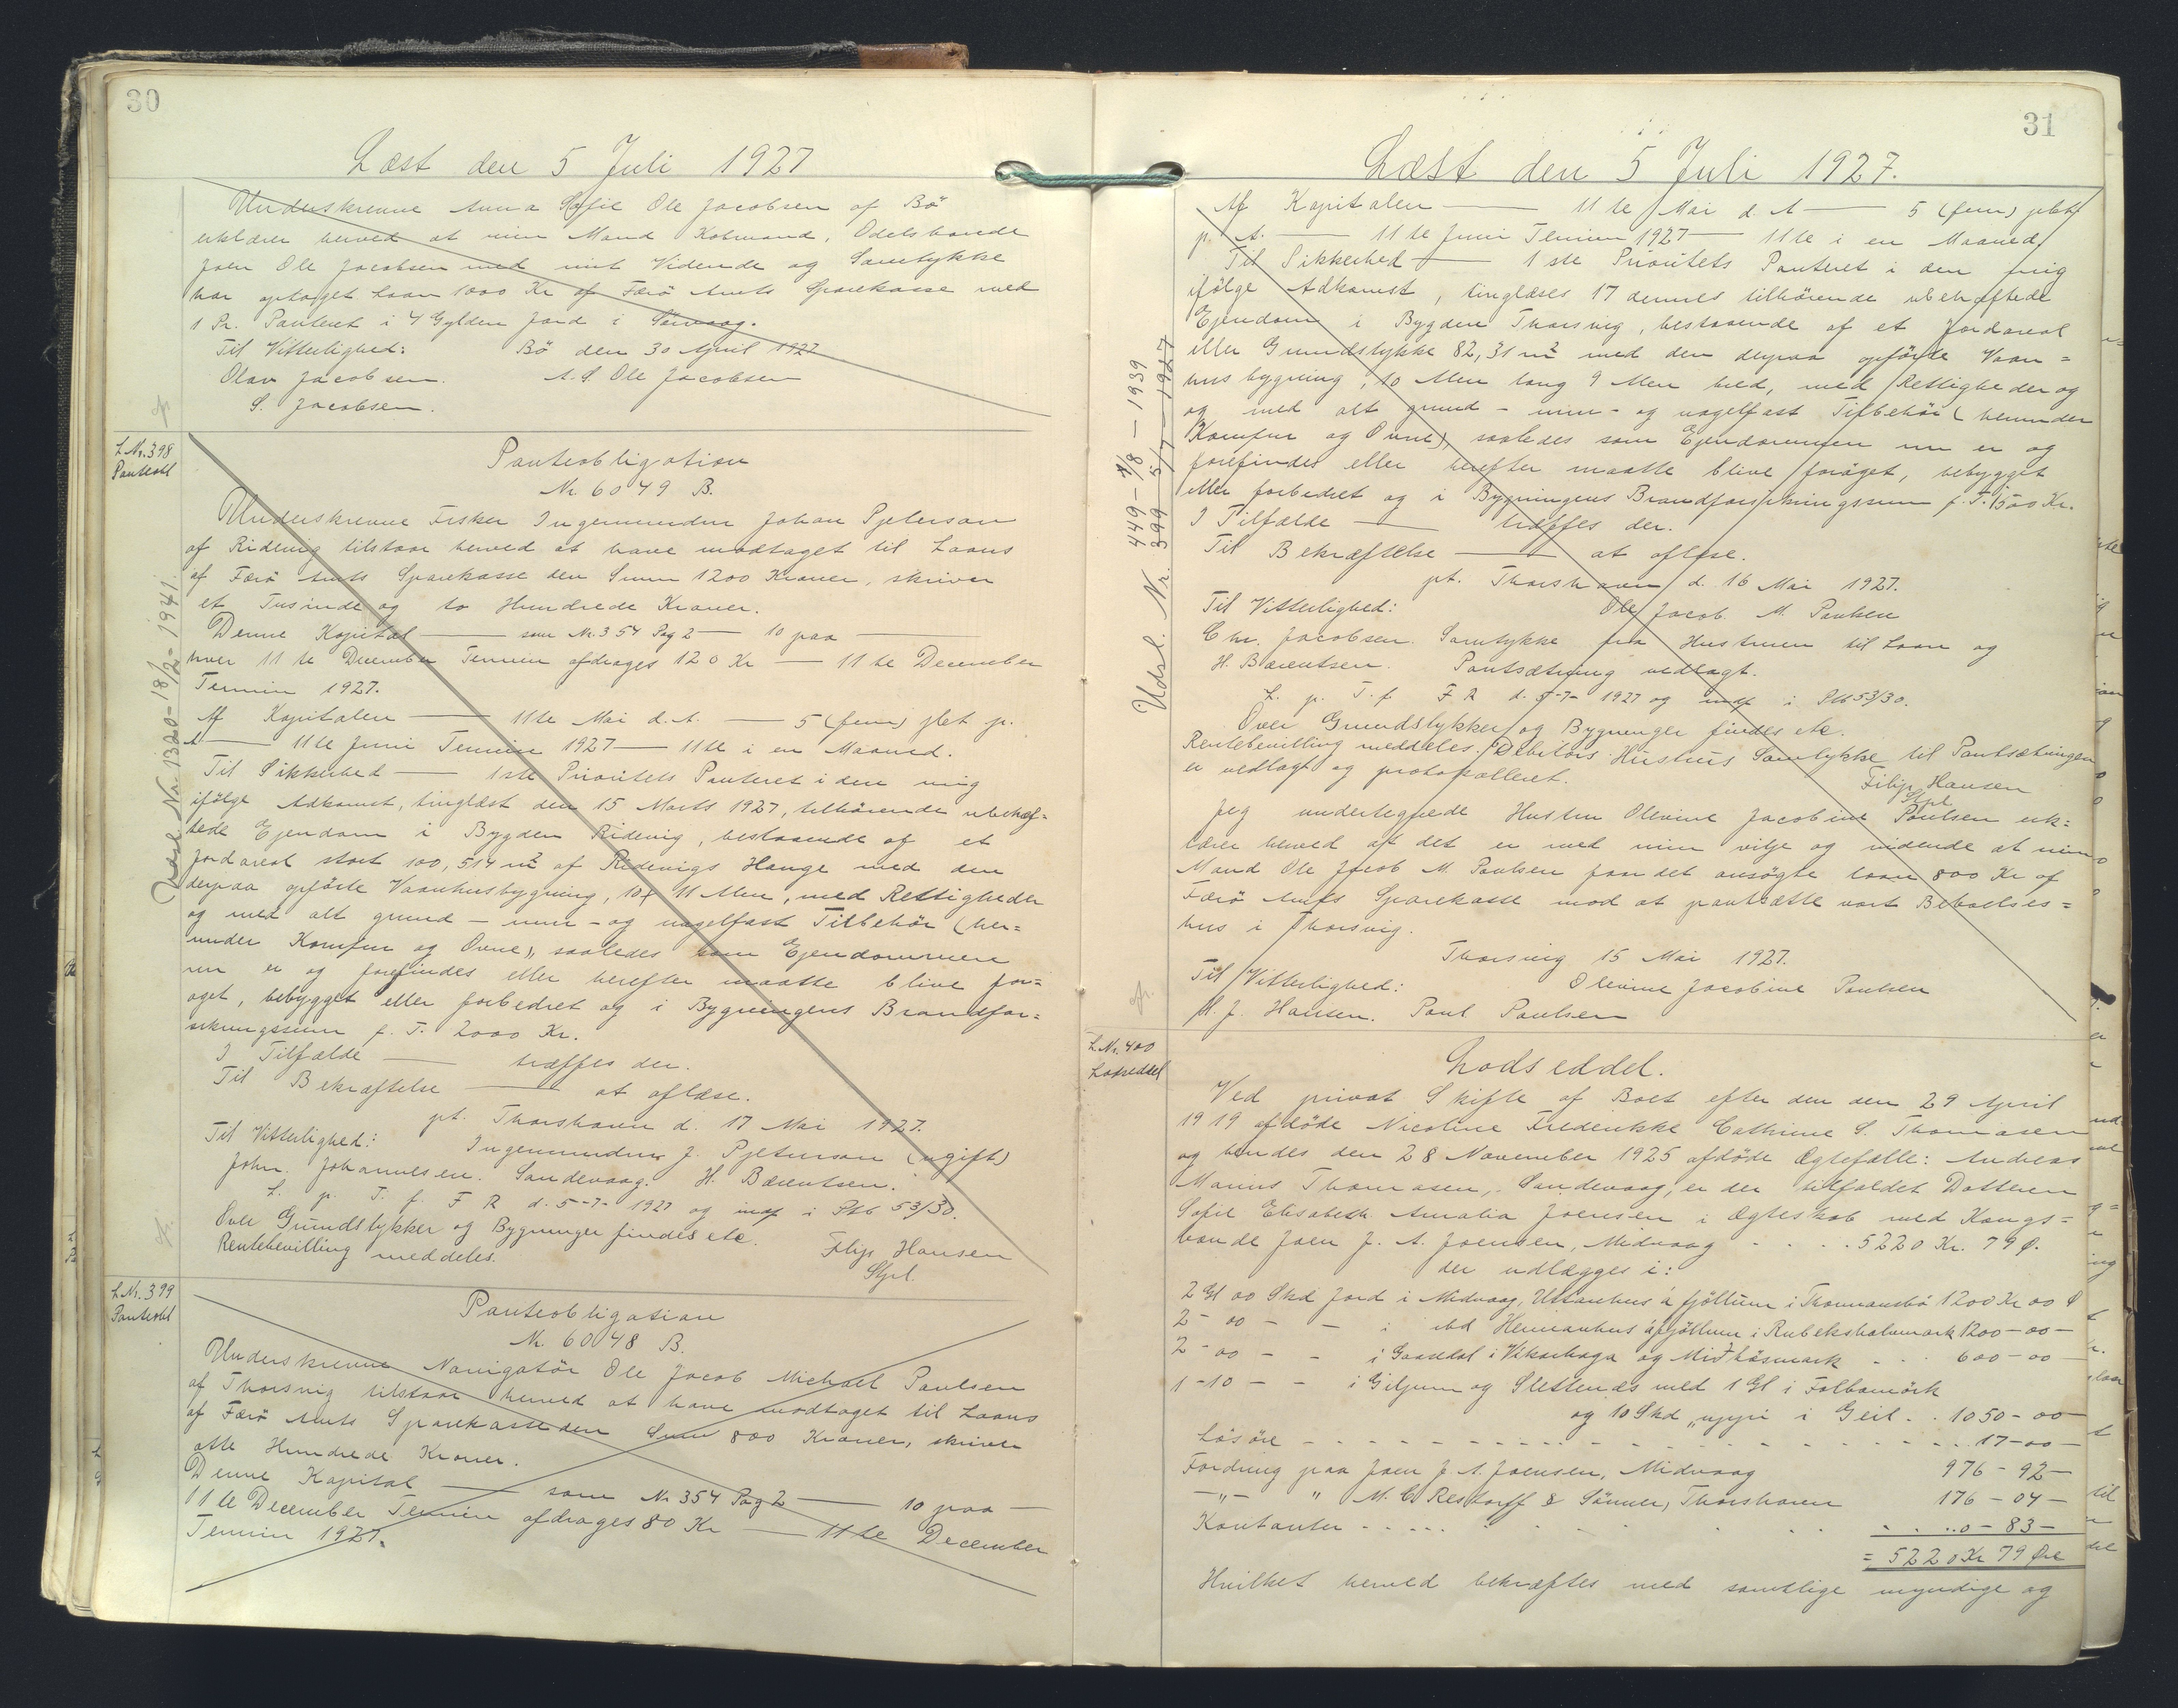 30
Læst den 5 Juli 1927
Underskrevne Anna Sofie Ole Jacobsen af Bö
erklærer herved at min Mand Købmand, Odelsbonde
Joen Ole Jacobsen med mit Vidende og Samtykke
har optaget Laan 1000 Kr af Færö Amts Sparekasse med
1 Pr. Panteret i 4 Gylden Jord i Sørvaag.
Til Vitterlighed: Bö den 30 April 1927
Olav Jacobsen. A. S. Ole Jacobsen
S. Jacobsen.
L Nr. 398
Panteobl
Panteobligation
Nr. 6049 B.
Underskrevne Fisker Ingemundur Johan Pjeterson
af Ridevig tilstaar herved at have modtaget til Laans
af Færö Amts Sparekasse den Summ 1200 Kroner, skriver
et Tusinde og to Hundrede Kroner.
Denne Kapital — som Nr. 354 Pag 2 — 10 paa —
hver 11 te December Termin afdrages 120 Kr — 11 te December
Termin 1927.
Af Kapitalen — 11te Mai d. A. — 5 (fem) pCt p.
A — 11 te Juni Termin 1927 — 11te i en Maaned.
Til Sikkerhed — 1ste Prioritets Panteret i den mig
ifölge Adkomst, tinglæst den 15 Marts 1927, tilhörende ubehæf=
tede Ejendom i Bygden Ridevig, bestaaende af et
Jordareal stort 100,514 m² af Ridevigs Hauge med den
derpaa opförte Vaanhusbygning, 10 x 11 Alen, med Rettigheder
og med alt grund - mur - og nagelfast Tilbehör (her=
under Komfur og Ovne), saaledes som Ejendommen
nu er og forefindes eller herefter maatte blive for=
øget, bebygget eller forbedret og i Bygningens Brandfor=
sikringssum p. T. 2000 Kr.
I Tilfælde — træffes der.
Til Bekræftelse — at aflæse.
pt. Thorshavn d. 17 Mai 1927.
Til Vitterlighed: Ingemundur J. Pjeturson (ugift)
John. Johannesen. Sandevaag. H. Bærentsen.
L. p. T. f. F R d. 5-7- 1927 og indf i Ptb 53/30.
Over Grundstykker og Bygninger findes etc.
Rentebevilling meddeles. Filip Hansen
Stpl.
Udsl. Nr. 1320- 18/2- 1941.
L Nr. 399
Panteobl
Panteobligation
Nr. 6048 B.
Underskrevne Navigatör Ole Jacob Michael Paulsen
af Thorsvig tilstaar herved at have modtaget til Laans
af Færö Amts Sparekasse den Sum 800 Kroner, skriver
otte Hundrede Kroner.
Denne Kapital — som Nr 354 Pag 2 — 10 paa —
11 te December Termin afdrages 80 Kr — 11 te December
Termin 1927.
31
Læst den 5 Juli 1927.
Af Kapitalen — 11 te Mai d. A — 5 (fem) pCt
p. A. — 11 te Juni Termin 1927 — 11te i en Maaned.
Til Sikkerhed — 1 ste Prioritets Panteret i den mig
ifölge Adkomst, tinglæses 17 dennes tilhörende ubehæftede
Ejendom i Bygden Thorsvig, bestaaende af et Jordareal
eller Grundstykke 82,31 m² med den derpaa opförte Vaan=
hus bygning, 10 Alen lang 9 Alen bred, med Rettigheder og
og med alt grund - mur - og nagelfast Tilbehör (herunder
Komfur og Ovne), saaledes som Ejendommen nu er og
forefindes eller herefter maatte blive forøget, bebygget
eller forbedret og i Bygningens Brandforsikringssum p. T. 1500 Kr.
I Tilfælde — træffes der.
Til Bekræftelse — at aflæse.
pt. Thorshavn d. 16 Mai 1927.
Til Vitterlighed: Ole Jacob M. Paulsen
Chr. Jacobsen. Samtykke fra Hustruen til Laan og
H. Bærentsen. Pantsætning vedlagt.
L. p. T. f. F R d. 5-7- 1927 og indf i Ptb 53/30.
Over Grundstykker og Bygninger findes etc.
Rentebevilling meddeles. Debitors Hustrus Samtykke til Pantsætningen
er vedlagt og protokolleret. Filip Hansen
Stpl
Jeg undertegnede Hustru Olevine Jacobine Poulsen erk=
lærer herved at det er med min vilje og vidende at min
Mand Ole Jacob M. Paulsen faar det ansøgte laan 800 Kr af
Færö Amts Sparekasse mod at pantsætte vort Beboelses=
hus i Thorsvig.
Thorsvig 15 Mai 1927.
Til Vitterlighed: Olevine Jacobine Paulsen
M. J. Hansen. Paul Paulsen
449 - 1/8 - 1939
Udsl. Nr. 399 5/7 - 1927
L. Nr. 400
Lodseddel
Lodseddel.
Ved privat Skifte af Boet efter den den 29 April
1919 afdöde Nicoline Frederikke Cathrine S. Thomasen
og hendes den 28 November 1925 afdöde Ægtefælle: Andreas
Marius Thomasen, Sandevaag, er der tilfaldet Datteren
Sofie Elisabeth Amalia Joensen i Ægteskab med Kongs=
bonde Joen J. A. Joensen, Midvaag - - - - 5220 Kr. 79 Ø.
der udlægges i:
2 Gl 00 Skd Jord i Midvaag, Uttanhus á fjöllum i Thormansbö 1200 Kr 00 Ø
2 - 00 - - i ibd Heimanhus á fjöllum i Rubekshalvmark 1200 - 00 -
2 - 00 - - i Gaasedal i Vikarhaga og Miðhösmark - - - 600 - 00 -
1 - 10 - - i Giljum og Slettenæs med 1 Gl i Folbamörk
og 10 Skd „uppi i Geil - - 1050 - 00 -
Lösöre - - - - - 17 - 00 -
Fordring paa Joen J. A. Joensen, Midvaag 976 - 92 -
- „ - " M. C. Restorff & Sönner, Thorshavn 176 - 04 -
Kontanter - - - - - 0 - 83 -
= 5220 Kr 79 Øre
Hvilket herved bekræftes med samtlige myndige og